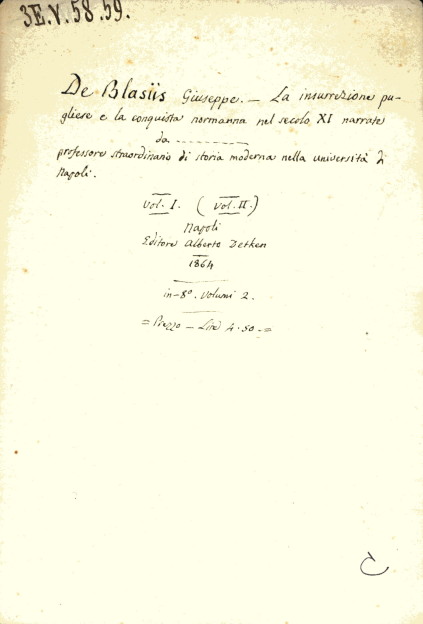 3E.V.58.59.
De Blasiis Giuseppe. — La insurrezione pu-
gliese e la conquista normanna nel secolo XI narrate
da ------------
professore straordinario di storia moderna nella università di
Napoli.
Vol. I. (Vol. II.)
Napoli
Editore Alberto Detken
1864
in-8°. Volumi 2.
= Prezzo — Lire 4.50 =
C